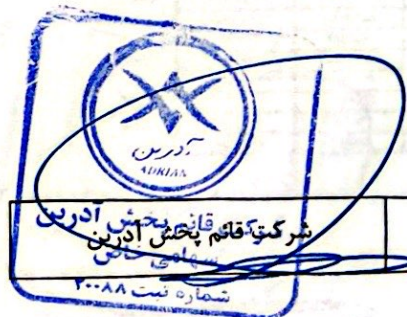 آدرین
ADRIAN
شرکت قائم پخش آدرین
شرکت قائم پخش آدرین
سهامی خاص
شماره ثبت ۲۰۰۸۸